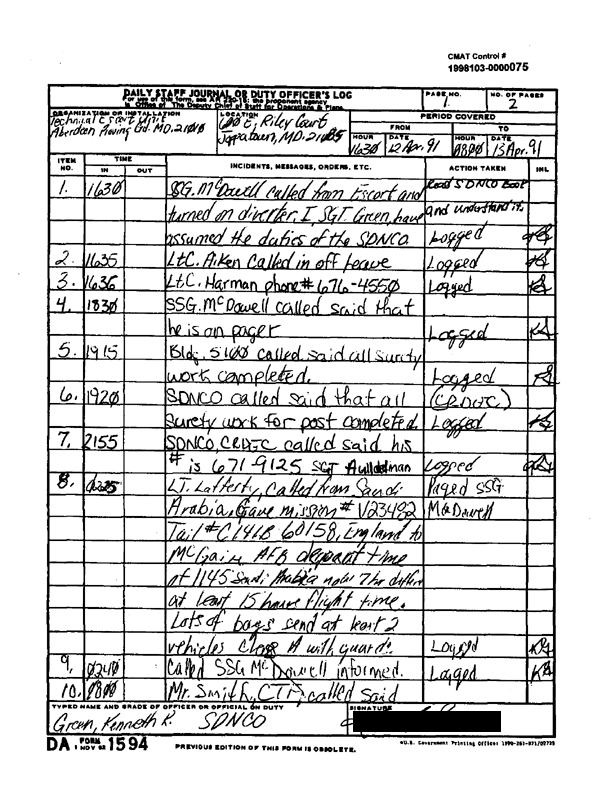 CMAT Control #
1998103-0000075
DAILY STAFF JOURNAL OR DUTY OFFICER'S LOG
For use of this form, see AR 220-15; the proponent agency
is Office of The Deputy Chief of Staff for Operations & Plans
PAGE NO.
1
NO. OF PAGES
2
ORGANIZATION OR INSTALLATION
Technical Escort Unit
Aberdeen Proving Grd. MD. 21010
LOCATION
600 E, Riley Court
Joppatown, MD. 21085
PERIOD COVERED
FROM
TO
HOUR
1630
DATE
12 Apr. 91
HOUR
0800
DATE
13 Apr. 91
ITEM NO.
TIME
IN
OUT
INCIDENTS, MESSAGES, ORDERS, ETC.
ACTION TAKEN
INL
1. 1630 SSG. McDowell called from Escort and Read SDNCO Book
turned on diverter. I, SGT Green, have and understand it.
assumed the duties of the SDNCO Logged
2. 1635 LtC. Aiken called in off leave Logged
3. 1636 LtC. Harman phone # 676-4550 Logged
4. 1830 SSG. McDowell called said that
he is on pager Logged
5. 1915 Bldg. 5100 called said all surety
work completed. Logged
6. 1920 SDNCO called said that all (CRDEC)
surety work for post completed Logged
7. 2155 SDNCO, CRDEC called said his
# is 671-9125 SGT Logged
8. LT. Lafferty, called from Saudi Paged SSG
Arabia, Gave mission # V23492 McDowell
Tail # C141B 60158, England to
McGuire AFB depart time
at 1145 Saudi Arabia now 7 hr differ
at least 15 hours flight time.
Lots of bags send at least 2
vehicles with guard. Logged
9. 0240 Called SSG McDowell informed. Logged
10. 0800 Mr. Smith, CTF, called said
TYPED NAME AND GRADE OF OFFICER OR OFFICIAL ON DUTY
Green, Kenneth R. SDNCO
SIGNATURE
DA FORM 1594
1 NOV 62
PREVIOUS EDITION OF THIS FORM IS OBSOLETE.
*U.S. Government Printing Office: 1990-261-871/02735